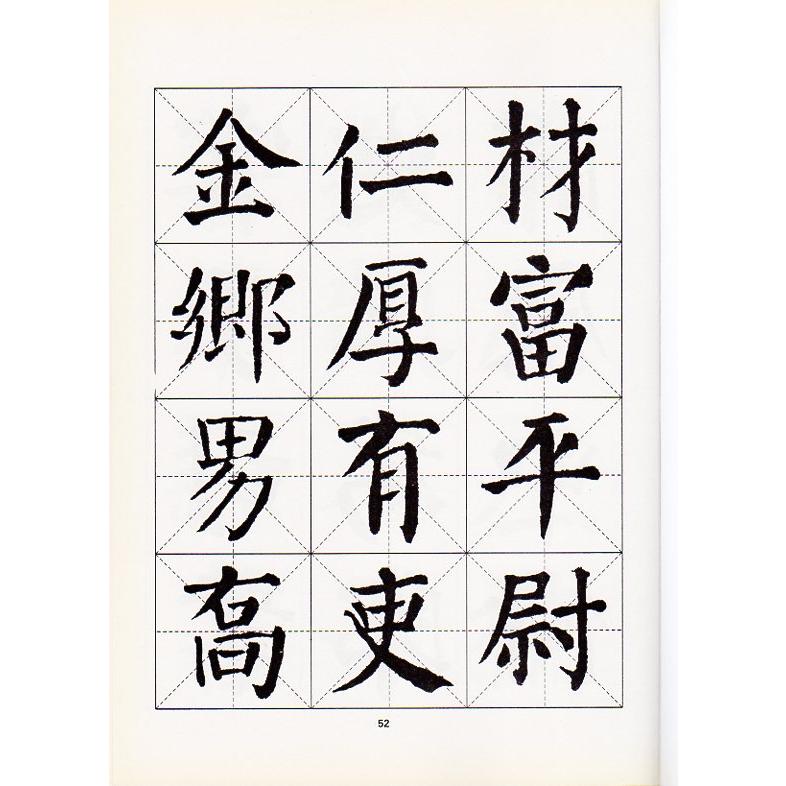 金鄉男喬
仁厚有吏
材富平尉
52